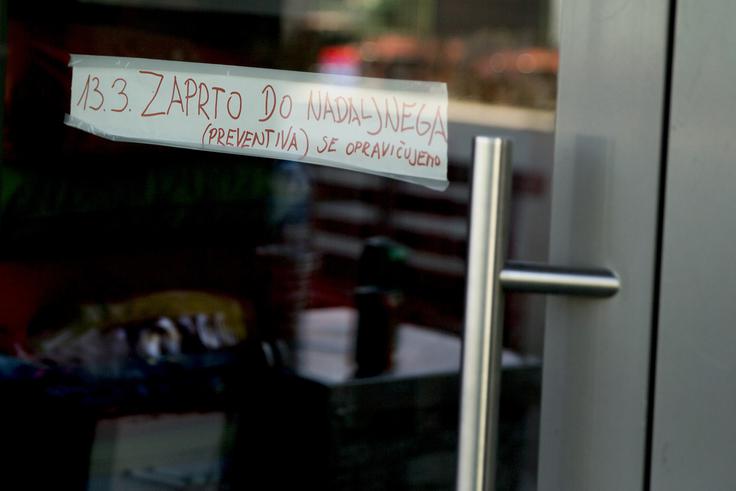 13.3. ZAPRTO DO NADALJNEGA
(PREVENTIVA) SE OPRAVIČUJEMO